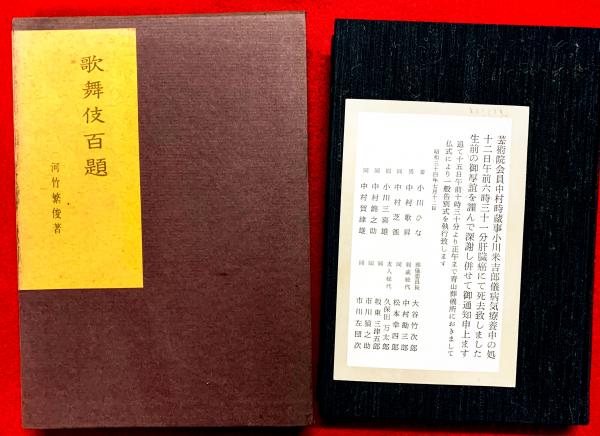 歌舞伎百題
河竹繁俊著
芸術院会員中村時蔵事小川米吉郎儀病気療養中の処
十二日午前六時三十一分肝臓癌にて死去致しました
生前の御厚誼を謹んで深謝し併せて御通知申上ます
追て十五日午前十時三十分より正午まで青山葬儀所におきまして
仏式により一般告別式を執行致します
昭和三十四年七月十二日
妻 小川ひな
男 中村歌昇
同 中村芝雀
同 小川三喜雄
同 中村錦之助
同 中村賀津雄
葬儀委員長 大谷竹次郎
親戚総代 中村勘三郎
同 松本幸四郎
友人総代 久保田万太郎
同 坂東三津五郎
同 市川猿之助
同 市川左団次